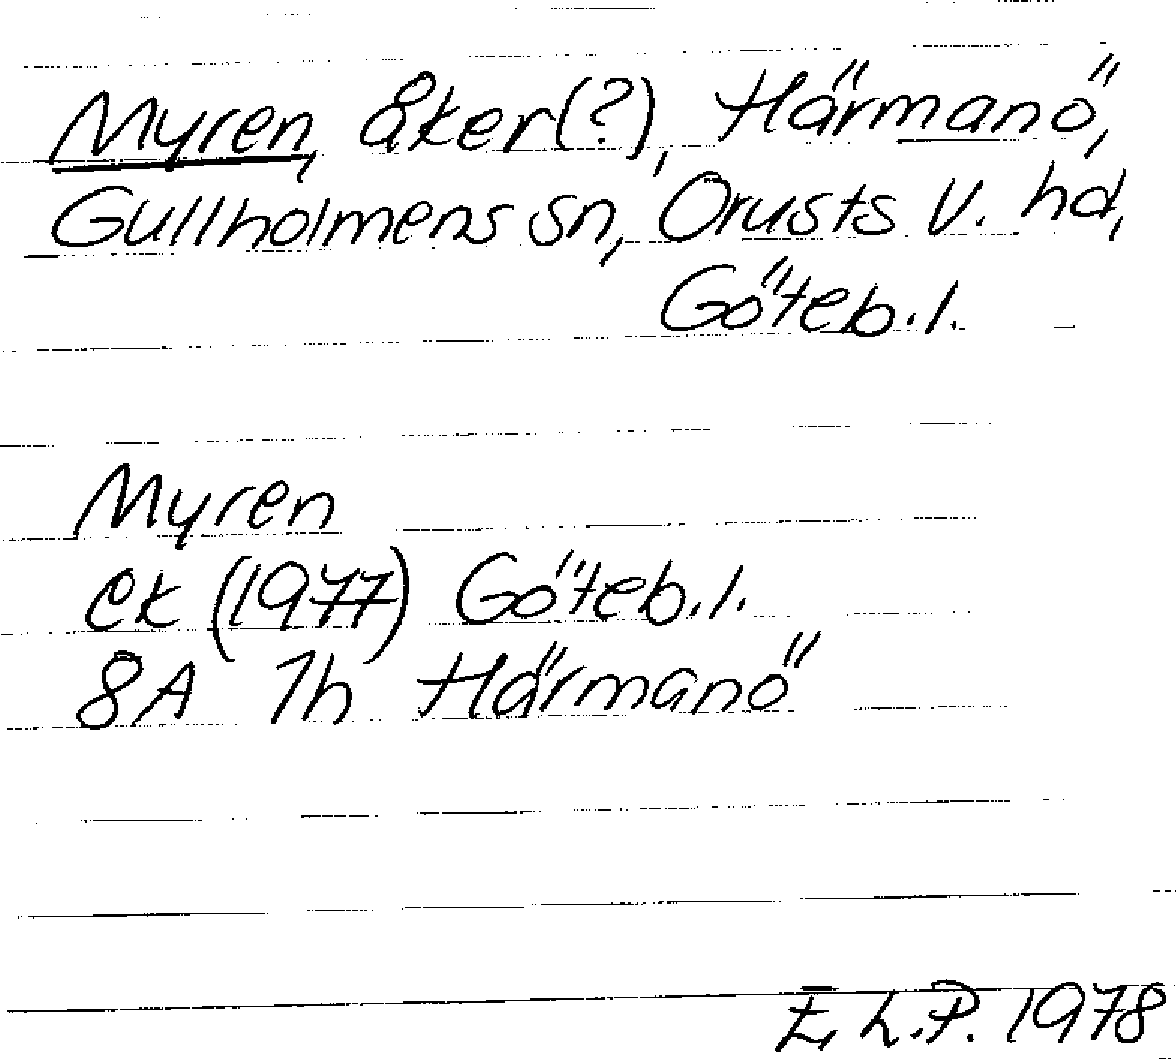 Myren, åker(?), Härmanö,
Gullholmens sn, Orusts V. hd,
Göteb.l.
Myren
ek (1977) Göteb.l.
8A 7h Härmanö
E.L.P. 1978